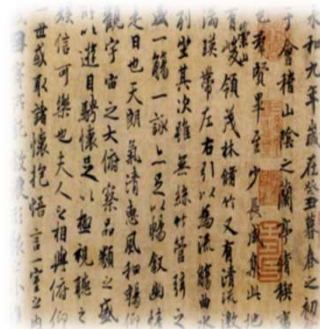 永和九年歲在癸丑暮春之初
于會稽山陰之蘭亭脩禊事
也羣賢畢至少長咸集此地
有崇山峻領茂林脩竹又有清流激
湍暎帶左右引以為流觴曲水
列坐其次雖無絲竹管弦之
盛一觴一詠亦足以暢叙幽情
是日也天朗氣清惠風和暢仰
觀宇宙之大俯察品類之盛
所以遊目騁懷足以極視聽之
娛信可樂也夫人之相與俯仰
一世或取諸懷抱悟言一室之內
因寄所託放浪形骸之外